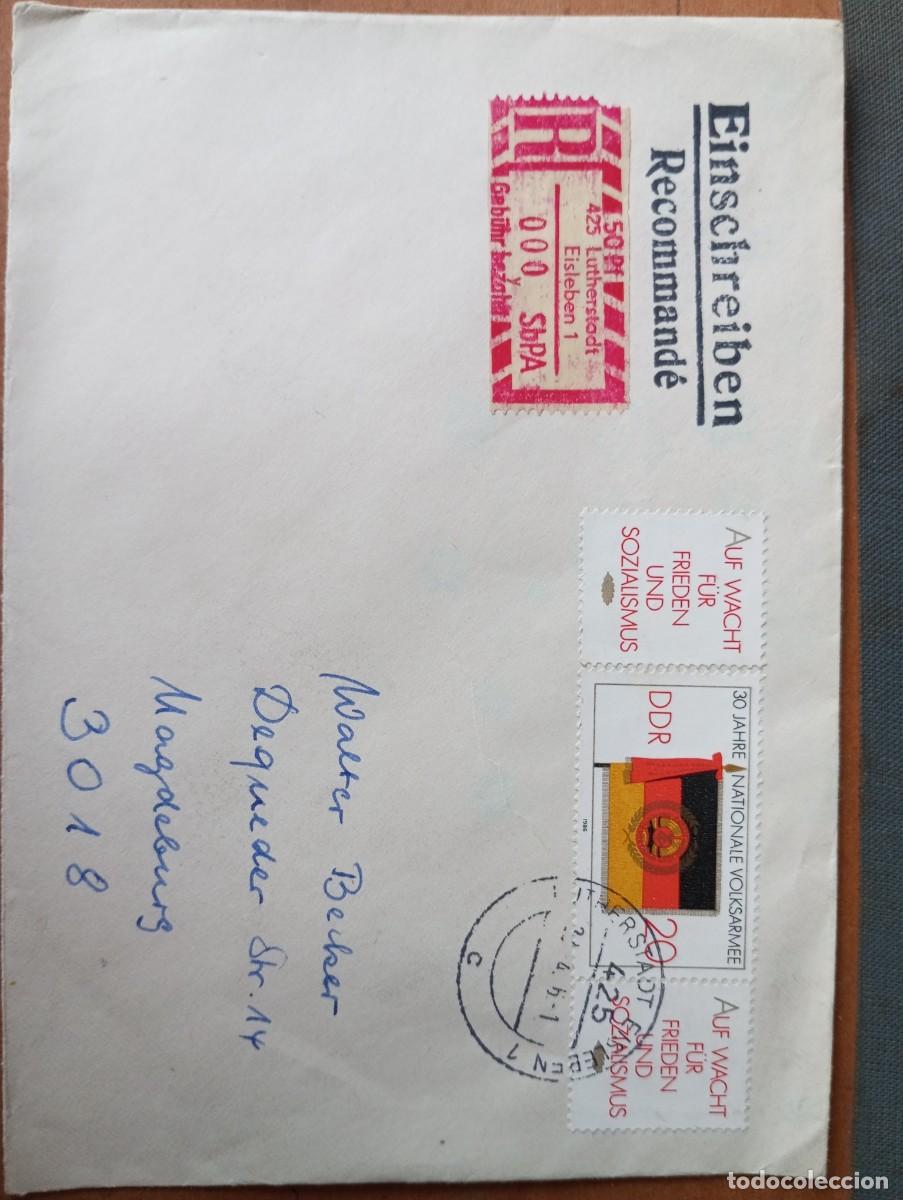 Einschreiben
Recommandé
R
50 Pf
425 Lutherstadt
Eisleben 1
000 SbPA
Gebühr bezahlt
AUF WACHT
FÜR
FRIEDEN
UND
SOZIALISMUS
30 JAHRE NATIONALE VOLKSARMEE
DDR
20
1986
AUF WACHT
FÜR
FRIEDEN
UND
SOZIALISMUS
425
C
Walter Becker
Dequeder Str. 14
Magdeburg
3018
todocoleccion